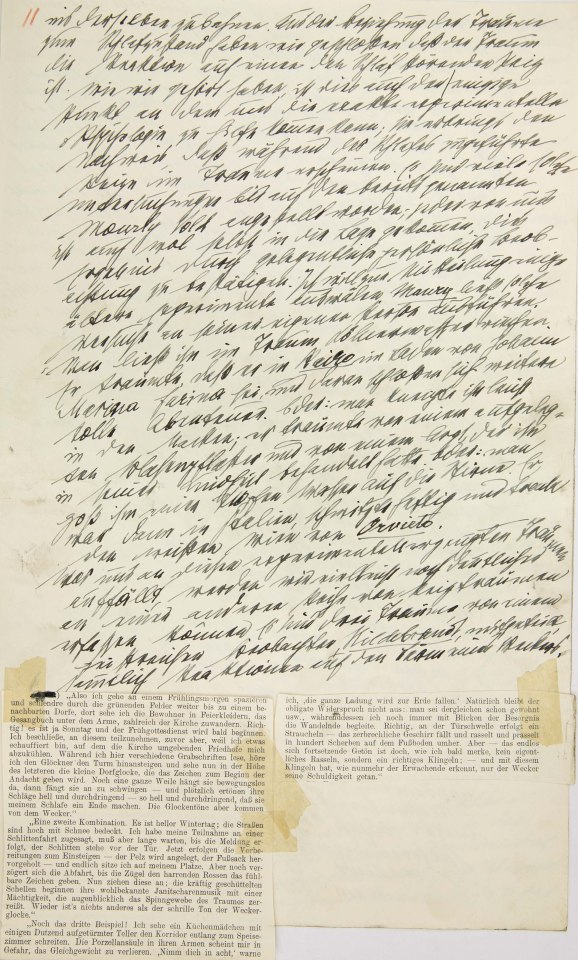 11
mit derselben zu bahnen. Aus der Beziehung des Traumes
zum Schlafzustand haben wir geschlossen daß der Traum
die Reaktion auf einen den Schlaf störenden Reiz
ist. Wie wir gehört haben, ist dies auch der einzige
Punkt an dem uns die exakte experimentelle
Psychologie zu Hilfe kommen kann; sie erbringt den
Nachweis, daß während des Schlafes zugeführte
Reize im Traume erscheinen. Es sind viele solche
Untersuchungen bis auf den bereits genannten
Mourly Vold angestellt worden; jeder von uns
ist auch wol selbst in die Lage gekommen, dies
Ergebnis durch gelegentliche persönliche Beob-
achtung zu bestätigen. Ich will zur Mitteilung einige
ältere Experimente auswälen. Maury ließ solche
Versuche an seiner eigenen Person ausführen.
Man ließ ihn im Traum Kölnerwasser riechen.
Er träumte, daß er in Kairo im Laden von Johann
Maria Farina sei, und daran schloßen sich weitere
tolle Abenteuer. Oder: man kneipte ihn leicht
in den Nacken; er träumte von einem aufgeleg-
ten Blasenpflaster und von einem Arzt, der ihn
in seiner Kindheit behandelt hatte. Oder: man
goß ihm einen Tropfen Wasser auf die Stirne. Er
war dann in Italien, schwitzte heftig und trank
den weißen Wein von Orvieto.
Was uns an diesen experimentell erzeugten Träumen
auffällt werden wir vielleicht noch deutlicher
an einer anderen Reihe von Reizträumen
erfassen können. Es sind drei Träume von einem
geistreichen Beobachter, Hildebrandt, mitgeteilt,
sämtlich Reaktionen auf den Lärm eines Weckers.
) „Also ich gehe an einem Frühlingsmorgen spazieren
und schlendre durch die grünenden Felder weiter bis zu einem be-
nachbarten Dorfe, dort sehe ich die Bewohner in Feierkleidern, das
Gesangbuch unter dem Arme, zahlreich der Kirche zuwandern. Rich-
tig! es ist ja Sonntag und der Frühgottesdienst wird bald beginnen.
Ich beschließe, an diesem teilzunehmen, zuvor aber, weil ich etwas
echauffiert bin, auf dem die Kirche umgebenden Friedhofe mich
abzukühlen. Während ich hier verschiedene Grabschriften lese, höre
ich den Glöckner den Turm hinansteigen und sehe nun in der Höhe
des letzteren die kleine Dorfglocke, die das Zeichen zum Beginn der
Andacht geben wird. Noch eine ganze Weile hängt sie bewegungslos
da, dann fängt sie an zu schwingen — und plötzlich ertönen ihre
Schläge hell und durchdringend — so hell und durchdringend, daß sie
meinem Schlafe ein Ende machen. Die Glockentöne aber kommen
von dem Wecker.“
„Eine zweite Kombination. Es ist heller Wintertag; die Straßen
sind hoch mit Schnee bedeckt. Ich habe meine Teilnahme an einer
Schlittenfahrt zugesagt, muß aber lange warten, bis die Meldung er-
folgt, der Schlitten stehe vor der Tür. Jetzt erfolgen die Vorbe-
reitungen zum Einsteigen — der Pelz wird angelegt, der Fußsack her-
vorgeholt — und endlich sitze ich auf meinem Platze. Aber noch ver-
zögert sich die Abfahrt, bis die Zügel den harrenden Rossen das fühl-
bare Zeichen geben. Nun ziehen diese an; die kräftig geschüttelten
Schellen beginnen ihre wohlbekannte Janitscharenmusik mit einer
Mächtigkeit, die augenblicklich das Spinngewebe des Traumes zer-
reißt. Wieder ist's nichts anderes als der schrille Ton der Wecker-
glocke.“
„Noch das dritte Beispiel! Ich sehe ein Küchenmädchen mit
einigen Dutzend aufgetürmter Teller den Korridor entlang zum Speise-
zimmer schreiten. Die Porzellansäule in ihren Armen scheint mir in
Gefahr, das Gleichgewicht zu verlieren. ‚Nimm dich in acht,‘ warne
ich, ‚die ganze Ladung wird zur Erde fallen.‘ Natürlich bleibt der
obligate Widerspruch nicht aus: man sei dergleichen schon gewohnt
usw., währenddessen ich noch immer mit Blicken der Besorgnis
die Wandelnde begleite. Richtig, an der Türschwelle erfolgt ein
Straucheln — das zerbrechliche Geschirr fällt und rasselt und prasselt
in hundert Scherben auf dem Fußboden umher. Aber — das endlos
sich fortsetzende Getön ist doch, wie ich bald merke, kein eigent-
liches Rasseln, sondern ein richtiges Klingeln; — und mit diesem
Klingeln hat, wie nunmehr der Erwachende erkennt, nur der Wecker
seine Schuldigkeit getan.“